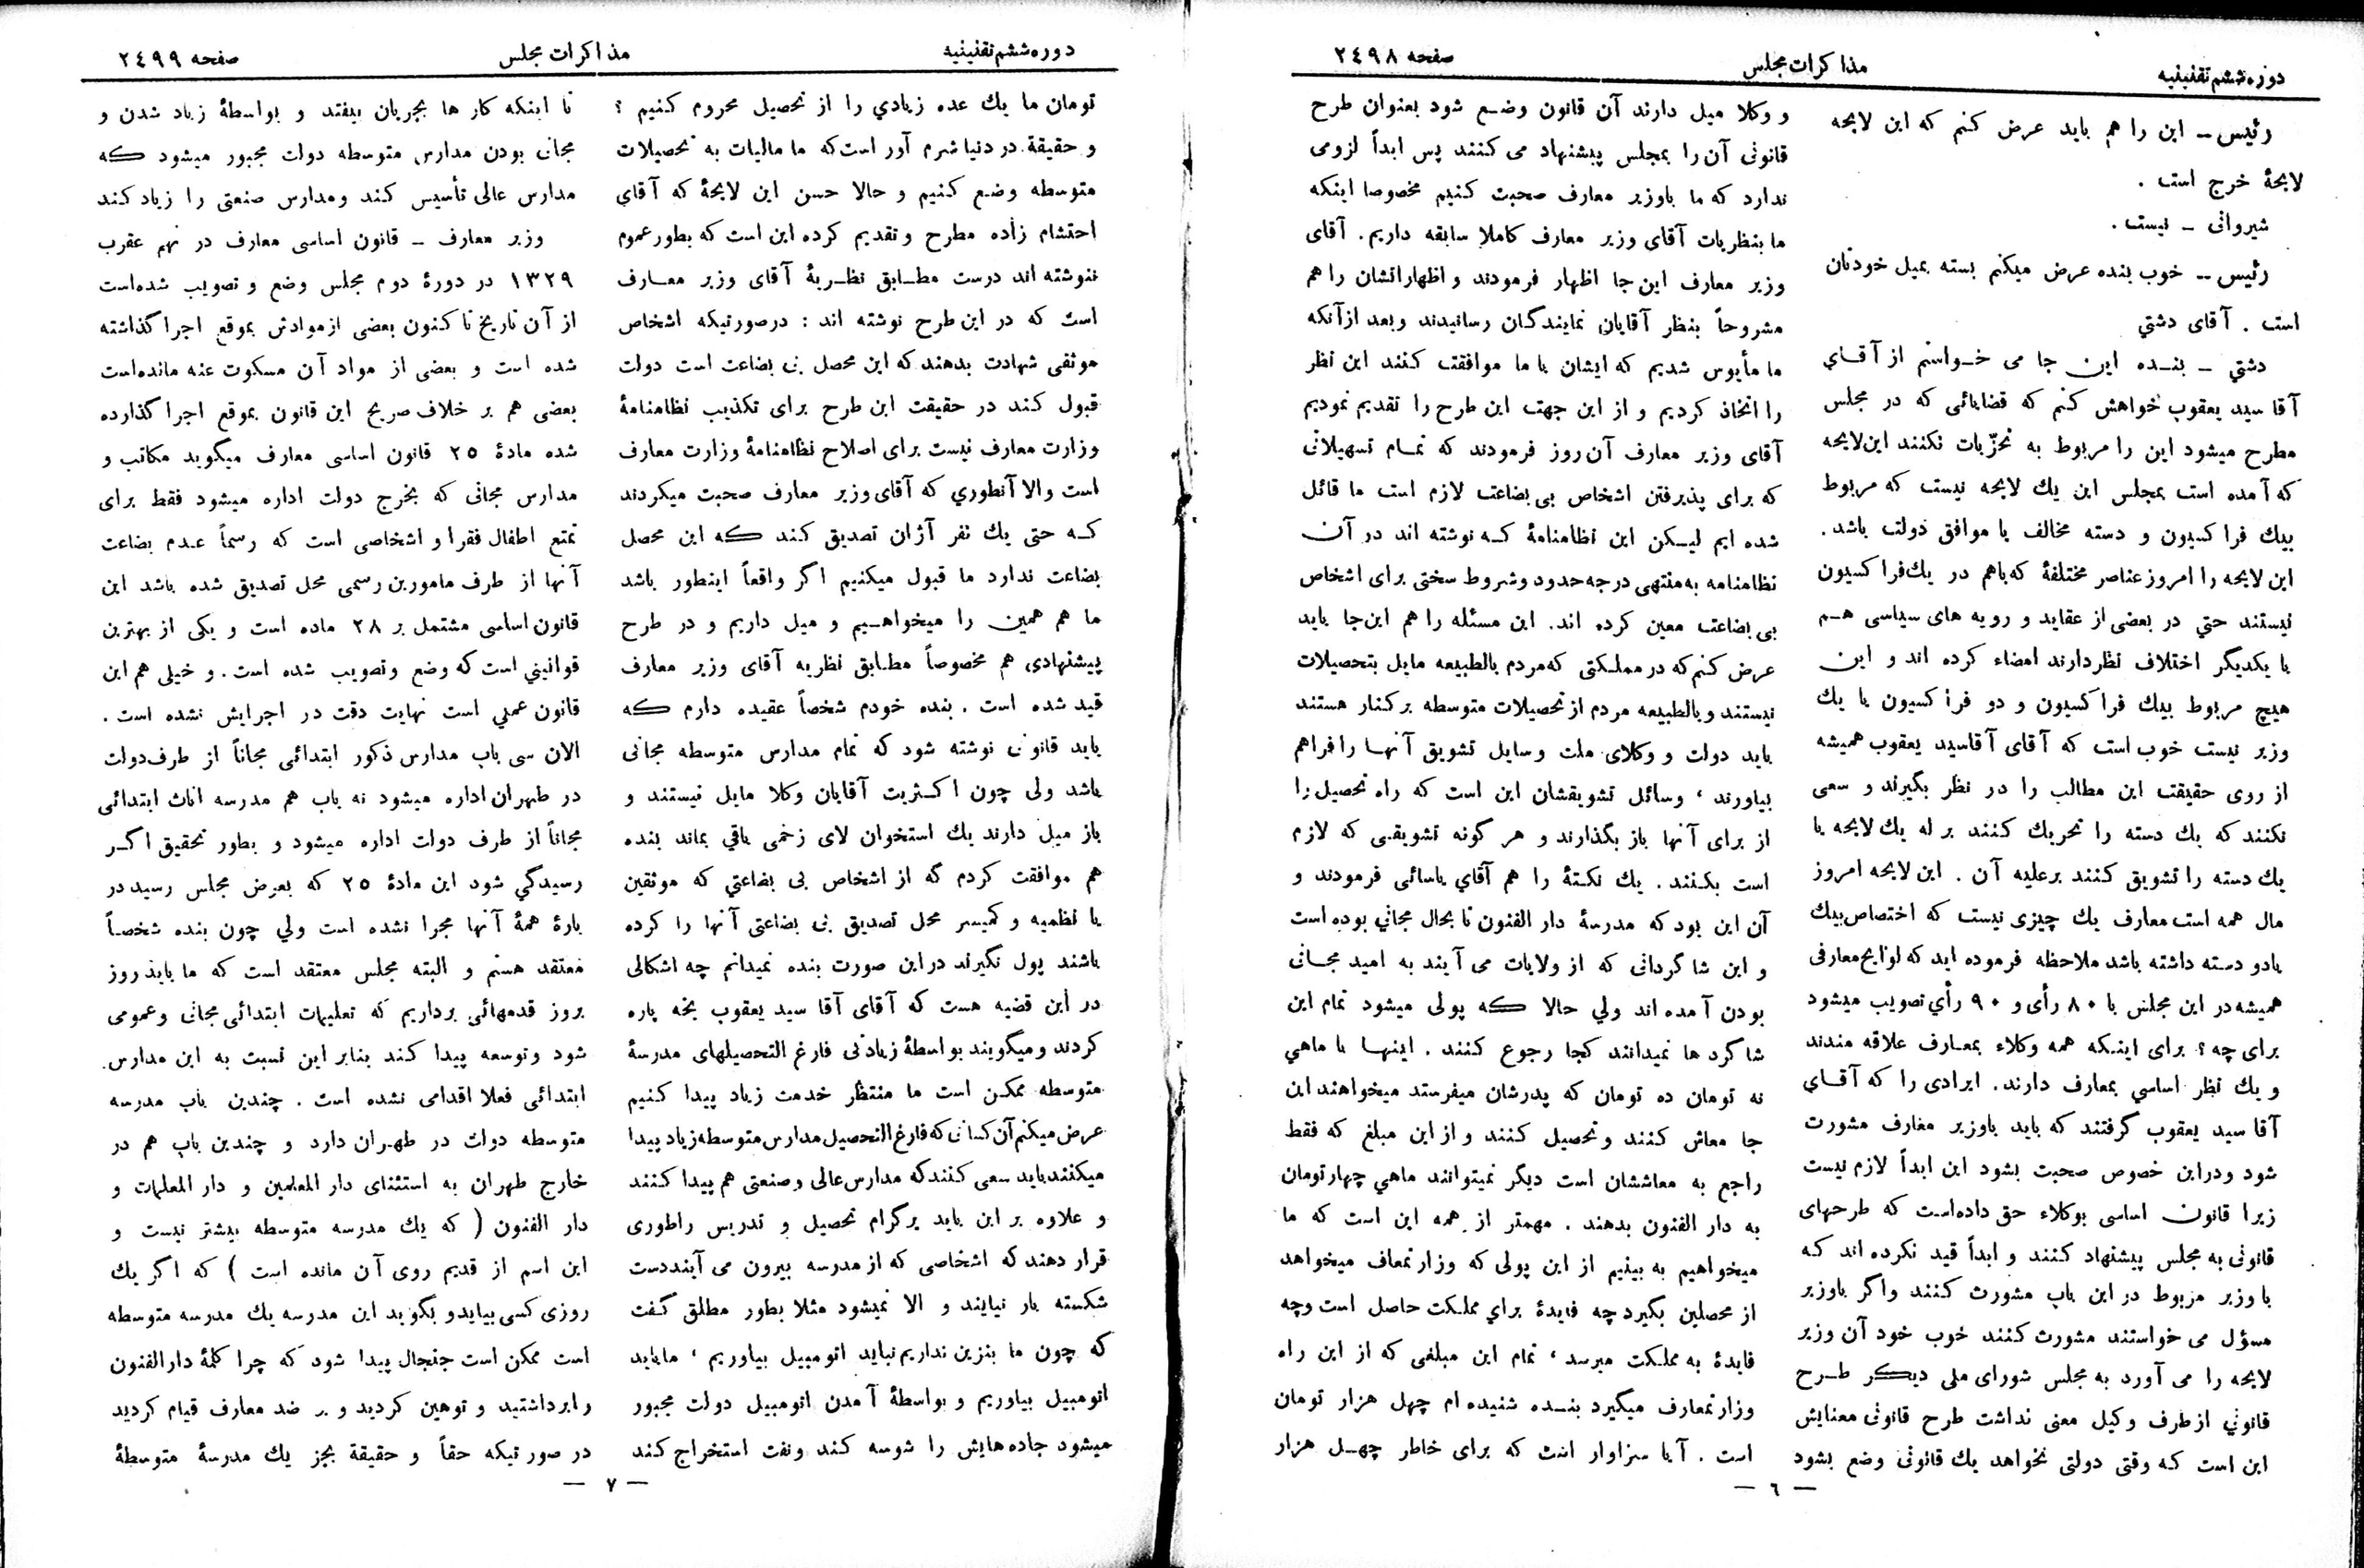 دوره ششم تقنینیه
مذاکرات مجلس
صفحه ۲٤۹۸
رئیس – این را هم باید عرض کنم که این لایحه
لایحهٔ خرج است .
شیروانی – نیست .
رئیس – خوب بنده عرض میکنم بسته بمیل خودتان
است . آقای دشتي
دشتي – بنده این جا می خواستم از آقای
آقا سید یعقوب خواهش کنم که قضایائی که در مجلس
مطرح میشود این را مربوط به تحزّبات نکنند این لایحه
که آمده است بمجلس این یك لایحه نیست که مربوط
بیك فراکسیون و دسته مخالف یا موافق دولت باشد .
این لایحه را امروز عناصر مختلفهٔ که باهم در یك فراکسیون
نیستند حتي در بعضی از عقاید و رویه های سیاسی هم
با یکدیگر اختلاف نظر دارند امضاء کرده اند و این
هیچ مربوط بیك فراکسیون و دو فراکسیون یا یك
وزیر نیست خوب است که آقای آقاسید یعقوب همیشه
از روی حقیقت این مطالب را در نظر بگیرند و سعی
نکنند که یك دسته را تحریك کنند بر له یك لایحه یا
یك دسته را تشویق کنند برعلیه آن . این لایحه امروز
مال همه است معارف یك چیزی نیست که اختصاص بیك
یادو دسته داشته باشد ملاحظه فرموده اید که لوایح معارفی
همیشه در این مجلس با ۸۰ رأی و ۹۰ رأي تصویب میشود
برای چه ؟ برای اینکه همه وکلاء بمعارف علاقه مندند
و یك نظر اساسي بمعارف دارند . ایرادی را که آقای
آقا سید یعقوب گرفتند که باید باوزیر معارف مشورت
شود ودراین خصوص صحبت بشود این ابداً لازم نیست
زیرا قانون اساسی بوکلاء حق داده است که طرحهای
قانونی به مجلس پیشنهاد کنند و ابداً قید نکرده اند که
با وزیر مربوط در این باب مشورت کنند واگر باوزیر
مسؤل می خواستند مشورت کنند خوب خود آن وزیر
لایحه را می آورد به مجلس شورای ملی دیگر طرح
قانوني از طرف وکیل معنی نداشت طرح قانونی معنایش
این است که وقتی دولتی نخواهد یك قانونی وضع بشود
و وکلا میل دارند آن قانون وضع شود بعنوان طرح
قانونی آن را بمجلس پیشنهاد می کنند پس ابداً لزومی
ندارد که ما باوزیر معارف صحبت کنیم مخصوصا اینکه
ما بنظریات آقای وزیر معارف کاملا سابقه داریم . آقای
وزیر معارف این جا اظهار فرمودند و اظهاراتشان را هم
مشروحاً بنظر آقایان نمایندگان رسانیدند وبعد ازآنکه
ما مأیوس شدیم که ایشان با ما موافقت کنند این نظر
را اتخاذ کردیم و از این جهت این طرح را تقدیم نمودیم
آقای وزیر معارف آن روز فرمودند که تمام تسهیلاتی
که برای پذیرفتن اشخاص بی بضاعت لازم است ما قائل
شده ایم لیکن این نظامنامهٔ که نوشته اند در آن
نظامنامه به منتهی درجه حدود و شروط سختی برای اشخاص
بی بضاعت معین کرده اند . این مسئله را هم این جا باید
عرض کنم که در مملکتی که مردم بالطبیعه مایل بتحصیلات
نیستند و بالطبیعه مردم از تحصیلات متوسطه برکنار هستند
باید دولت و وکلای ملت وسایل تشویق آنها را فراهم
بیاورند ، وسائل تشویقشان این است که راه تحصیل را
از برای آنها باز بگذارند و هر گونه تشویقی که لازم
است بکنند . یك نکتهٔ را هم آقاي یاسائی فرمودند و
آن این بود که مدرسهٔ دار الفنون تا بحال مجاني بوده است
و این شاگردانی که از ولایات می آیند به امید مجانی
بودن آمده اند ولي حالا که پولی میشود تمام این
شاگرد ها نمیدانند کجا رجوع کنند . اینها با ماهي
نه تومان ده تومان که پدرشان میفرستد میخواهند این
جا معاش کنند و تحصیل کنند و از این مبلغ که فقط
راجع به معاششان است دیگر نمیتوانند ماهي چهارتومان
به دار الفنون بدهند . مهمتر از همه این است که ما
میخواهیم به بینیم از این پولی که وزارتمعاف میخواهد
از محصلین بگیرد چه فایدهٔ براي مملکت حاصل است وچه
فایدهٔ به مملکت میرسد ، تمام این مبلغی که از این راه
وزارتمعارف میگیرد بنده شنیده ام چهل هزار تومان
است . آیا سزاوار است که برای خاطر چهل هزار
— ٦ —
دوره ششم تقنینیه
مذاکرات مجلس
صفحه ۲٤۹۹
تومان ما یك عده زیادي را از تحصیل محروم کنیم ؟
و حقیقة در دنیا شرم آور است که ما مالیات به تحصیلات
متوسطه وضع کنیم و حالا حسن این لایحهٔ که آقاي
احتشام زاده مطرح و تقدیم کرده این است که بطور عموم
ننوشته اند درست مطابق نظریهٔ آقای وزیر معارف
است که در این طرح نوشته اند : درصورتیکه اشخاص
موثقی شهادت بدهند که این محصل بی بضاعت است دولت
قبول کند در حقیقت این طرح برای تکذیب نظامنامهٔ
وزارت معارف نیست برای اصلاح نظامنامهٔ وزارت معارف
است والا آنطوري که آقای وزیر معارف صحبت میکردند
که حتی یك نفر آژان تصدیق کند که این محصل
بضاعت ندارد ما قبول میکنیم اگر واقعاً اینطور باشد
ما هم همین را میخواهیم و میل داریم و در طرح
پیشنهادی هم مخصوصاً مطابق نظریه آقای وزیر معارف
قید شده است . بنده خودم شخصاً عقیده دارم که
باید قانونی نوشته شود که تمام مدارس متوسطه مجانی
باشد ولی چون اکثریت آقایان وکلا مایل نیستند و
باز میل دارند یك استخوان لای زخمی باقي بماند بنده
هم موافقت کردم که از اشخاص بی بضاعتي که موثقین
یا نظمیه و کمیسر محل تصدیق بی بضاعتی آنها را کرده
باشند پول نگیرند در این صورت بنده نمیدانم چه اشکالی
در این قضیه هست که آقای آقا سید یعقوب بخه پاره
کردند و میگویند بواسطهٔ زیادتی فارغ التحصیلهای مدرسهٔ
متوسطه ممکن است ما منتظر خدمت زیاد پیدا کنیم
عرض میکنم آن کسانی که فارغ التحصیل مدارس متوسطه زیاد پیدا
میکنند باید سعی کنند که مدارس عالی و صنعتی هم پیدا کنند
و علاوه بر این باید پرگرام تحصیل و تدریس راطوری
قرار دهند که اشخاصی که از مدرسه بیرون می آیند دست
شکسته بار نیایند و الا نمیشود مثلا بطور مطلق گفت
که چون ما بنزین نداریم نباید اتومبیل بیاوریم ، ماباید
اتومبیل بیاوریم و بواسطهٔ آمدن اتومبیل دولت مجبور
میشود جاده هایش را شوسه کند ونفت استخراج کند
تا اینکه کار ها بجریان بیفتد و بواسطهٔ زیاد شدن و
مجانی بودن مدارس متوسطه دولت مجبور میشود که
مدارس عالی تأسیس کند ومدارس صنعتی را زیاد کند
وزیر معارف – قانون اساسی معارف در نهم عقرب
۱۳۲۹ در دورهٔ دوم مجلس وضع و تصویب شده است
از آن تاریخ تا کنون بعضی از موادش بموقع اجرا گذاشته
شده است و بعضی از مواد آن مسکوت عنه مانده است
بعضی هم بر خلاف صریح این قانون بموقع اجرا گذارده
شده مادهٔ ۲٥ قانون اساسی معارف میگوید مکاتب و
مدارس مجانی که بخرج دولت اداره میشود فقط برای
تمتع اطفال فقرا و اشخاصی است که رسماً عدم بضاعت
آنها از طرف مامورین رسمی محل تصدیق شده باشد این
قانون اساسی مشتمل بر ۲۸ ماده است و یکی از بهترین
قوانیني است که وضع وتصویب شده است . و خیلی هم این
قانون عملي است نهایت دقت در اجرایش نشده است .
الان سی باب مدارس ذکور ابتدائی مجاناً از طرف دولت
در طهران اداره میشود نه باب هم مدرسه اناث ابتدائی
مجاناً از طرف دولت اداره میشود و بطور تحقیق اگر
رسیدگي شود این مادهٔ ۲٥ که بعرض مجلس رسید در
بارهٔ همهٔ آنها مجرا نشده است ولي چون بنده شخصاً
معتقد هستم و البته مجلس معتقد است که ما باید روز
بروز قدمهائی برداریم که تعلیمات ابتدائی مجانی وعمومی
شود وتوسعه پیدا کند بنابر این نسبت به این مدارس
ابتدائی فعلا اقدامی نشده است . چندین باب مدرسه
متوسطه دولت در طهران دارد و چندین باب هم در
خارج طهران به استثنای دار المعلمین و دار المعلمات و
دار الفنون ( که یك مدرسه متوسطه بیشتر نیست و
این اسم از قدیم روی آن مانده است ) که اگر یك
روزی کسی بیاید و بگوید این مدرسه یك مدرسه متوسطه
است ممکن است جنجال پیدا شود که چرا کلمهٔ دارالفنون
رابرداشتید و توهین کردید و بر ضد معارف قیام کردید
در صورتیکه حقاً و حقیقة بجز یك مدرسهٔ متوسطهٔ
— ۷ —